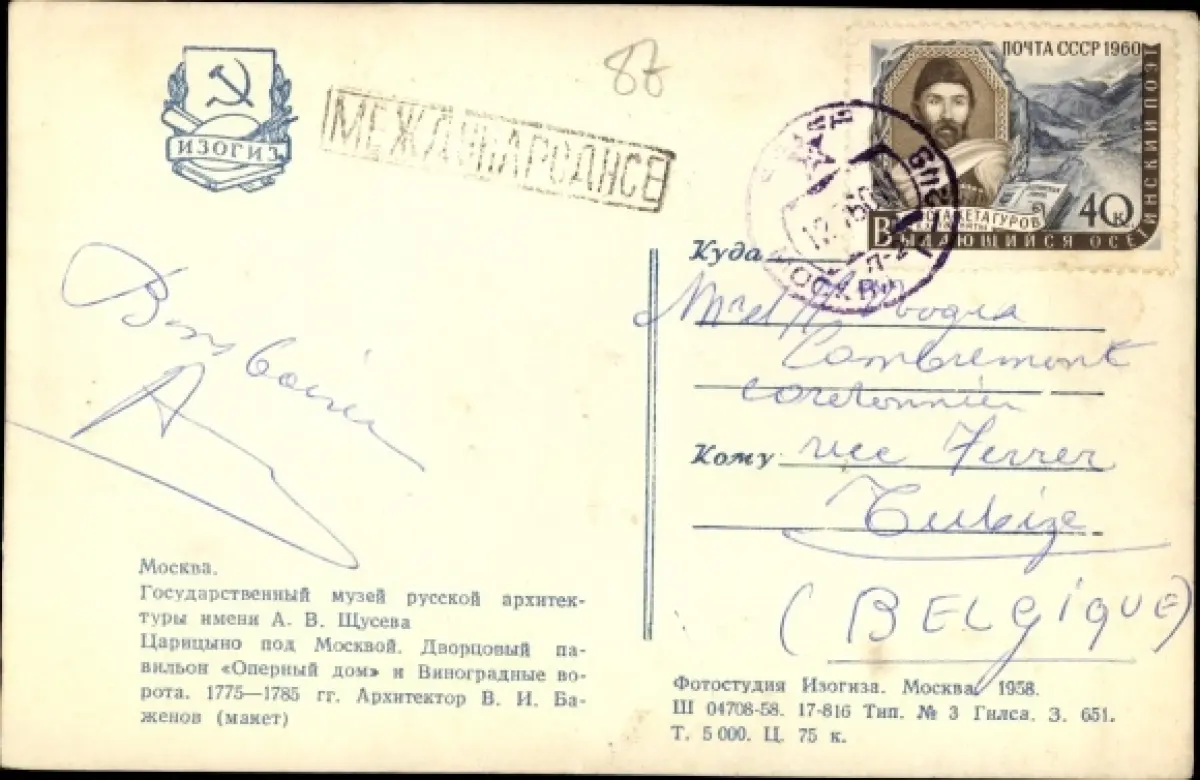 ИЗОГИЗ
87
МЕЖДУНАРОДНСЕ
ПОЧТА СССР 1960
КОСТА ХЕТАГУРОВ
40к
ВЫДАЮЩИЙСЯ ОСЕТИНСКИЙ ПОЭТ
МОСКВА
Куда
Cambremont
cordonnier
Кому rue Ferrer
Tubize
(BELGIQUE)
Bons baisers
A
Москва.
Государственный музей русской архитек-
туры имени А. В. Щусева
Царицыно под Москвой. Дворцовый па-
вильон «Оперный дом» и Виноградные во-
рота. 1775—1785 гг. Архитектор В. И. Ба-
женов (макет)
Фотостудия Изогиза. Москва, 1958.
Ш 04708-58. 17-816 Тип. № 3 Гилса. З. 651.
Т. 5 000. Ц. 75 к.